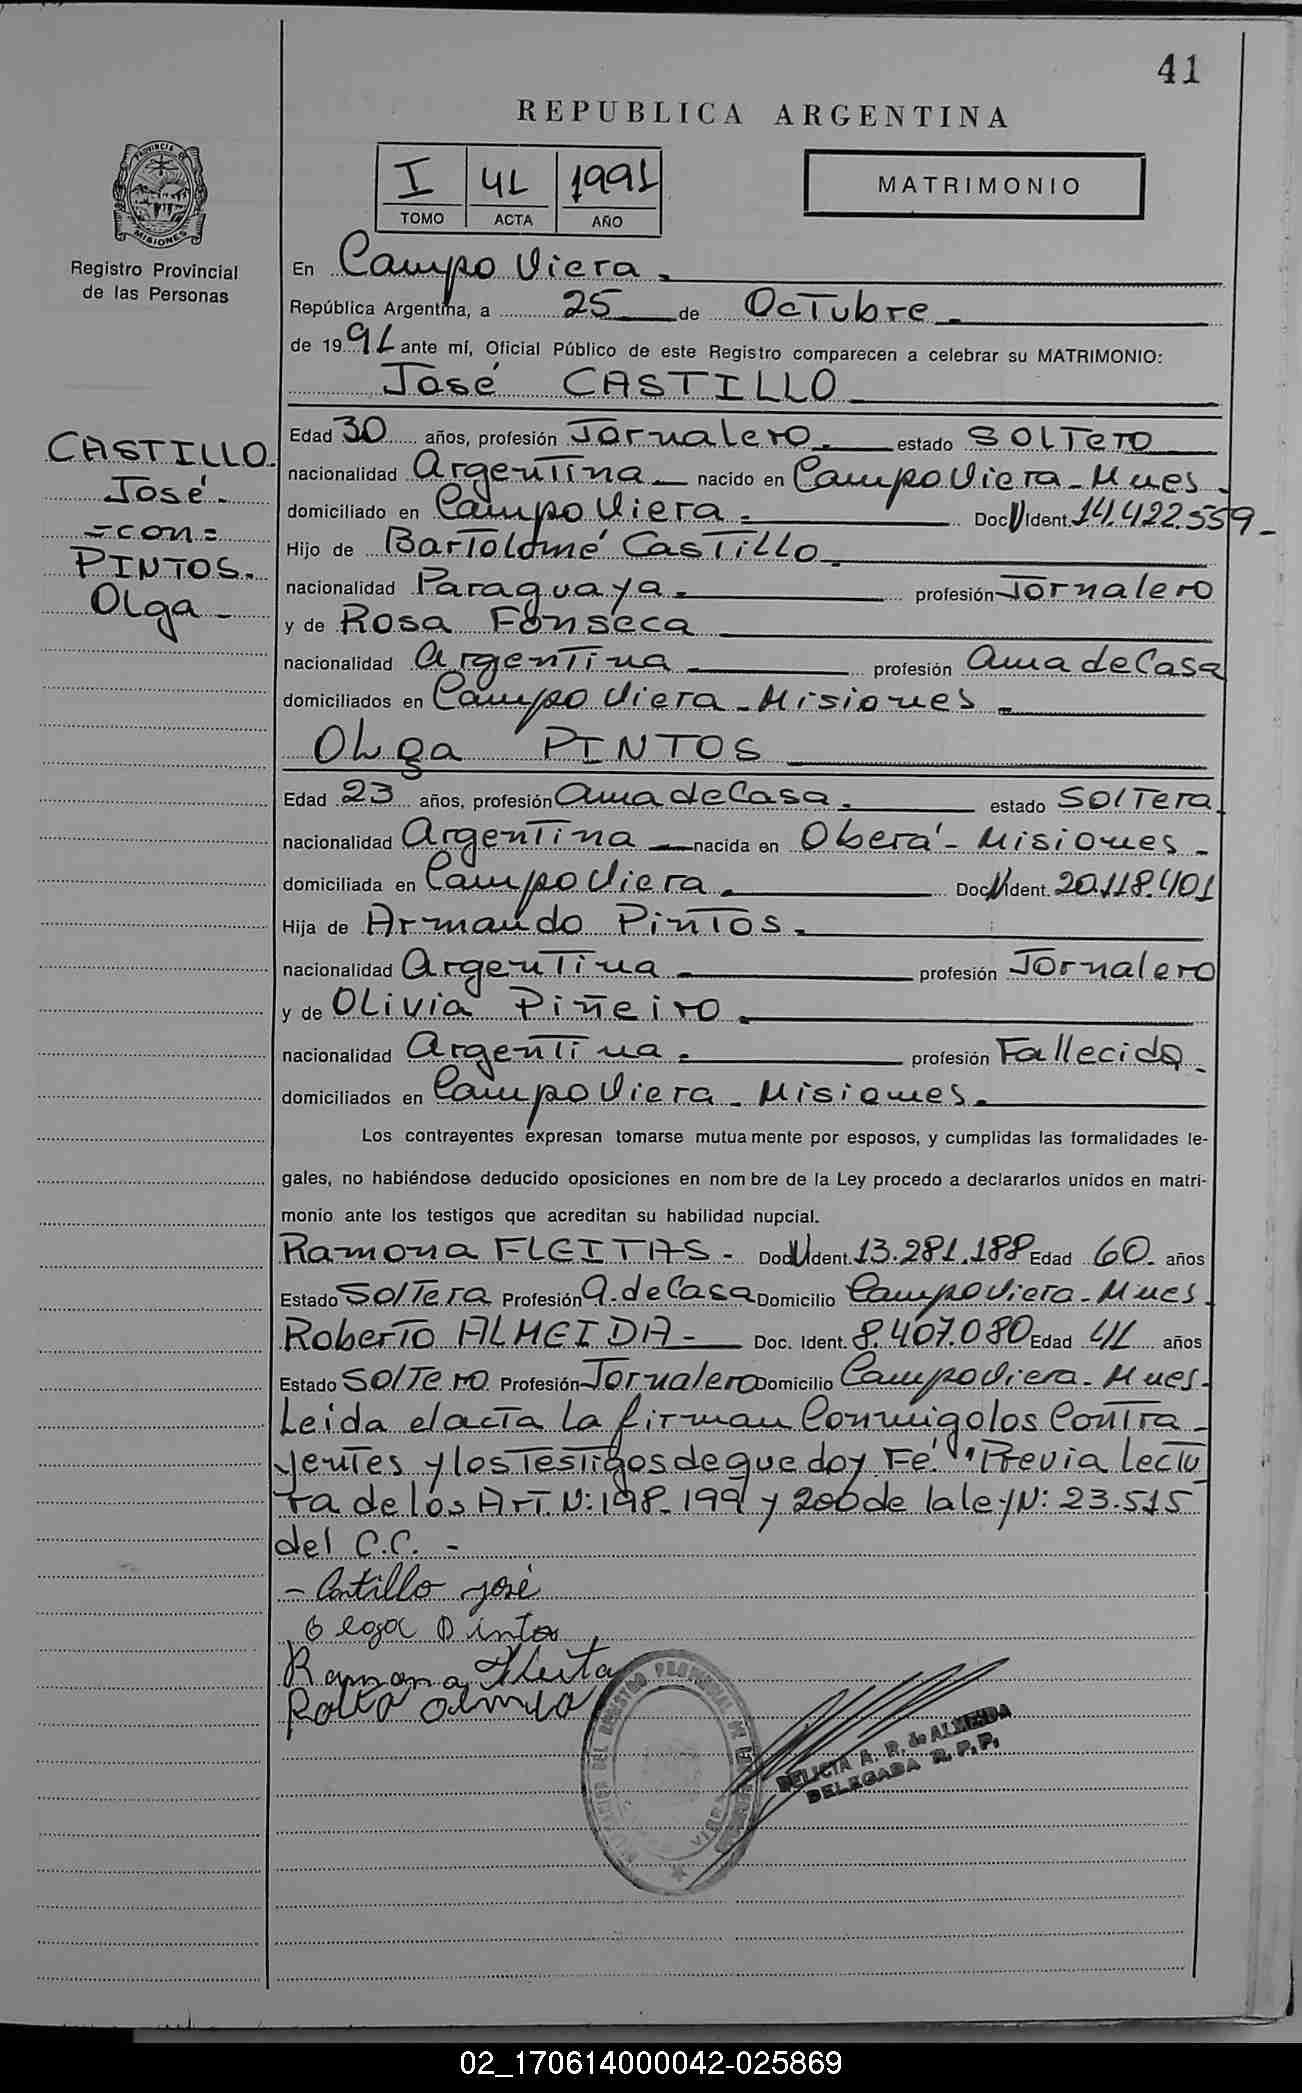 41
REPUBLICA ARGENTINA
I 41 1991
TOMO ACTA AÑO
MATRIMONIO
PROVINCIA DE MISIONES
Registro Provincial
de las Personas
CASTILLO
José
=con=
PINTOS
Olga
En Campo Viera
República Argentina, a 25 de Octubre
de 1991 ante mí, Oficial Público de este Registro comparecen a celebrar su MATRIMONIO:
José CASTILLO
Edad 30 años, profesión Jornalero estado Soltero
nacionalidad Argentina nacido en Campo Viera - Mnes
domiciliado en Campo Viera Doc. Ident. 14.422.559
Hijo de Bartolomé Castillo
nacionalidad Paraguaya profesión Jornalero
y de Rosa Fonseca
nacionalidad Argentina profesión Ama de Casa
domiciliados en Campo Viera - Misiones
Olga PINTOS
Edad 23 años, profesión Ama de Casa estado Soltera
nacionalidad Argentina nacida en Oberá - Misiones
domiciliada en Campo Viera Doc. Ident. 20.118.401
Hija de Armando Pintos
nacionalidad Argentina profesión Jornalero
y de Olivia Piñeiro
nacionalidad Argentina profesión Fallecida
domiciliados en Campo Viera - Misiones
Los contrayentes expresan tomarse mutuamente por esposos, y cumplidas las formalidades le-
gales, no habiéndose deducido oposiciones en nombre de la Ley procedo a declararlos unidos en matri-
monio ante los testigos que acreditan su habilidad nupcial.
Ramona FLEITAS - Doc. Ident. 13.281.188 Edad 60 años
Estado Soltera Profesión A. de Casa Domicilio Campo Viera - Mnes
Roberto ALMEIDA - Doc. Ident. 8.407.080 Edad 41 años
Estado Soltero Profesión Jornalero Domicilio Campo Viera - Mnes
Leida el acta la firman Conmigo los Contra-
yentes y los Testigos de que doy Fé. "Previa Lectu
ra de los Art. N: 198-199 y 200 de la ley N: 23.515
del C.C. -
- Castillo José
Olga Pintos
Ramona Fleita
DELICIA A. R. de ALMEIDA
DELEGADA R. P. P.
02_170614000042-025869